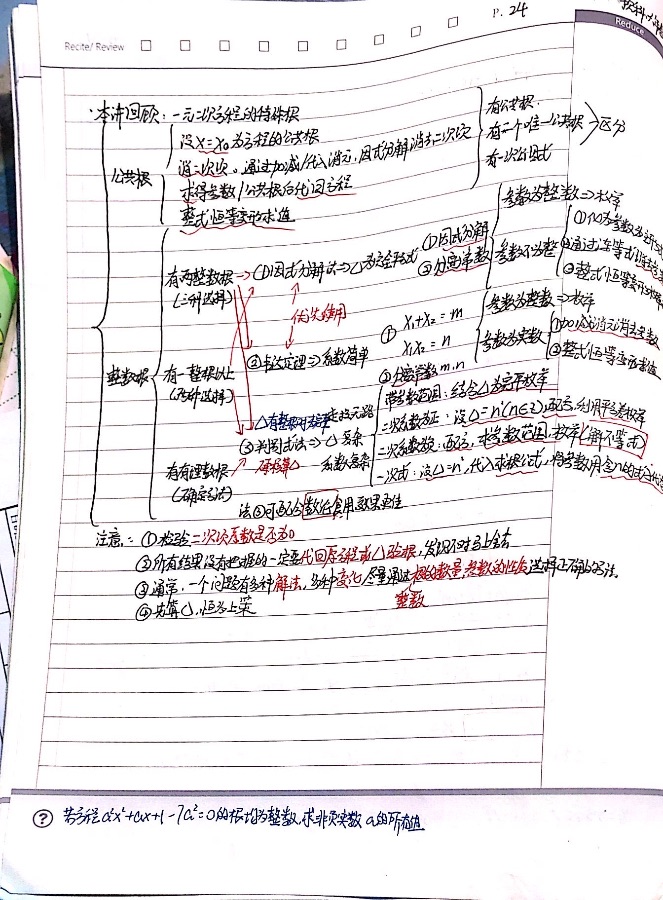 P. 24
Reduce
Recite/ Review
本讲回顾:一元二次方程的特殊根
公共根
设x=x₀为方程的公共根
消二次项。通过加减/代入消元,因式分解消去二次项
求得参数/公共根后代回方程
整式恒等变形求值
有公共根
有一个唯一公共根
有一次公因式
区分
整数根
有两整数根
(三种选择)
①因式分解法⇒△为完全平方式
①因式分解
②分离常数
参数为整数⇒枚举
参数不为整
优先使用
②韦达定理⇒系数简单
① x₁+x₂=m
x₁x₂=n
②分离常数m,n
参数为整数⇒枚举
参数为实数
①加减消元消去参数
②整式恒等变形求值
有一整根以上
(两种选择)
③判别式法⇒△复杂
再核算△
系数复杂
带参数范围:结合△为完全平方
二次系数正:设△=n²(n∈Z),配方,利用平方差枚举
二次系数负:配方,求参数范围,枚举(解不等式)
一次式:设△=n²,代入求根公式,
有有理数根
(确定方法)
法③可配合数论食用效果更佳
注意:①检验二次项系数是否为0
②所有结果没有把握的一定要代回原方程或△验根,发现不对马上舍去
③通常,一个问题有多种解法,多种变化,尽量通过根的数量,参数的性质选择正确的方法。
整数
④先算△,恒为上策
? 若方程a²x²+ax+1-7a²=0的根均为整数,求非负实数a的所有值